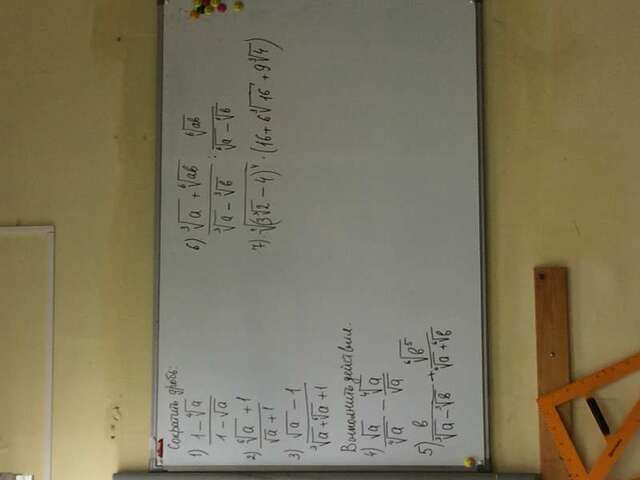 Сократить дробь:
1) \frac{1-\sqrt[4]{a}}{1-\sqrt{a}}
2) \frac{\sqrt[6]{a}+1}{\sqrt{a}+1}
3) \frac{\sqrt{a}-1}{\sqrt[3]{a}+\sqrt[6]{a}+1}
Выполнить действия.
4) \frac{\sqrt{a}}{\sqrt[4]{a}}-\frac{\sqrt[4]{a}}{\sqrt{a}}
5) \frac{b}{\sqrt[3]{a}-\sqrt[3]{b}}+\frac{\sqrt[6]{b^5}}{\sqrt[6]{a}+\sqrt[6]{b}}
6) \frac{\sqrt[3]{a}+\sqrt[6]{ab}}{\sqrt[3]{a}-\sqrt[3]{b}}:\frac{\sqrt[6]{ab}}{\sqrt[6]{a}-\sqrt[6]{b}}
7) \sqrt[4]{(3\sqrt[3]{2}-4)^4}\cdot(16+6\sqrt[3]{16}+9\sqrt[3]{4})